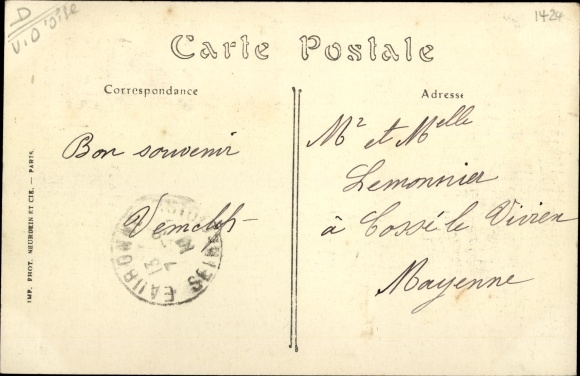 D
V. D'Oise
1424
Carte Postale
Correspondance
Adresse
Bon souvenir
Mr et Melle
Lemonnier
à Cossé le Vivien
Mayenne
EAUBONNE
13
7
SEINE
IMP. PHOT. NEURDEIN ET CIE. — PARIS.